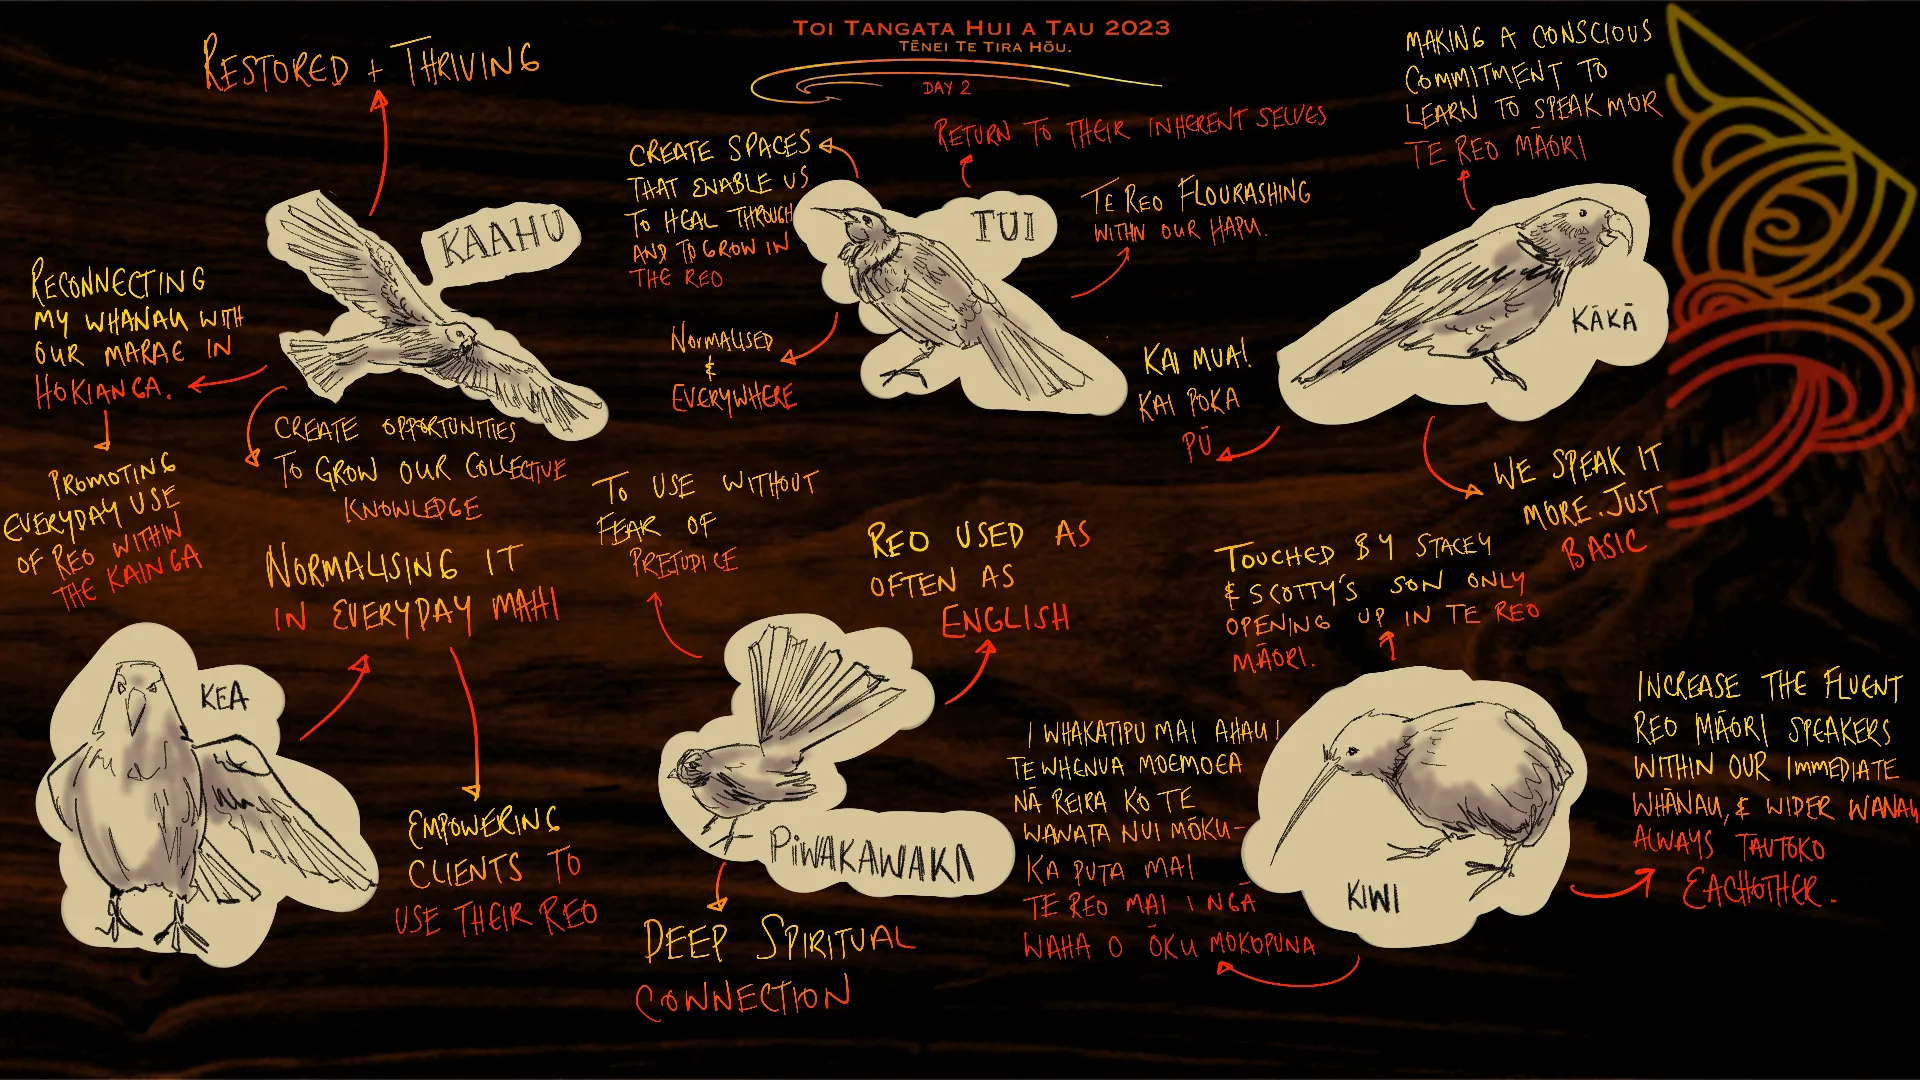 TOI TANGATA HUI A TAU 2023
TĒNEI TE TIRA HŌU.
DAY 2
RESTORED + THRIVING
KAAHU
RECONNECTING
MY WHANAU WITH
OUR MARAE IN
HOKIANGA.
PROMOTING
EVERYDAY USE
OF REO WITHIN
THE KAINGA
CREATE OPPORTUNITIES
TO GROW OUR COLLECTIVE
KNOWLEDGE
CREATE SPACES
THAT ENABLE US
TO HEAL THROUGH
AND TO GROW IN
THE REO
RETURN TO THEIR INHERENT SELVES
TUI
TE REO FLOURASHING
WITHN OUR HAPU.
NORMALISED
&
EVERYWHERE
MAKING A CONSCIOUS
COMMITMENT TO
LEARN TO SPEAK MOR
TE REO MĀORI
KĀKĀ
KAI MUA!
KAI POKA
PŪ
WE SPEAK IT
MORE. JUST
BASIC
NORMALISING IT
IN EVERYDAY MAHI
KEA
EMPOWERING
CLIENTS TO
USE THEIR REO
TO USE WITHOUT
FEAR OF
PREJUDICE
REO USED AS
OFTEN AS
ENGLISH
PIWAKAWAKA
DEEP SPIRITUAL
CONNECTION
TOUCHED BY STACEY
& SCOTTY'S SON ONLY
OPENING UP IN TE REO
MĀORI.
KIWI
I WHAKATIPU MAI AHAU I
TE WHENUA MOEMOEA
NĀ REIRA KO TE
WANATA NUI MŌKU-
KA PUTA MAI
TE REO MAI I NGĀ
WAHA O ŌKU MOKOPUNA
INCREASE THE FLUENT
REO MĀORI SPEAKERS
WITHIN OUR IMMEDIATE
WHĀNAU, & WIDER WANAU
ALWAYS TAUTOKO
EACHOTHER.